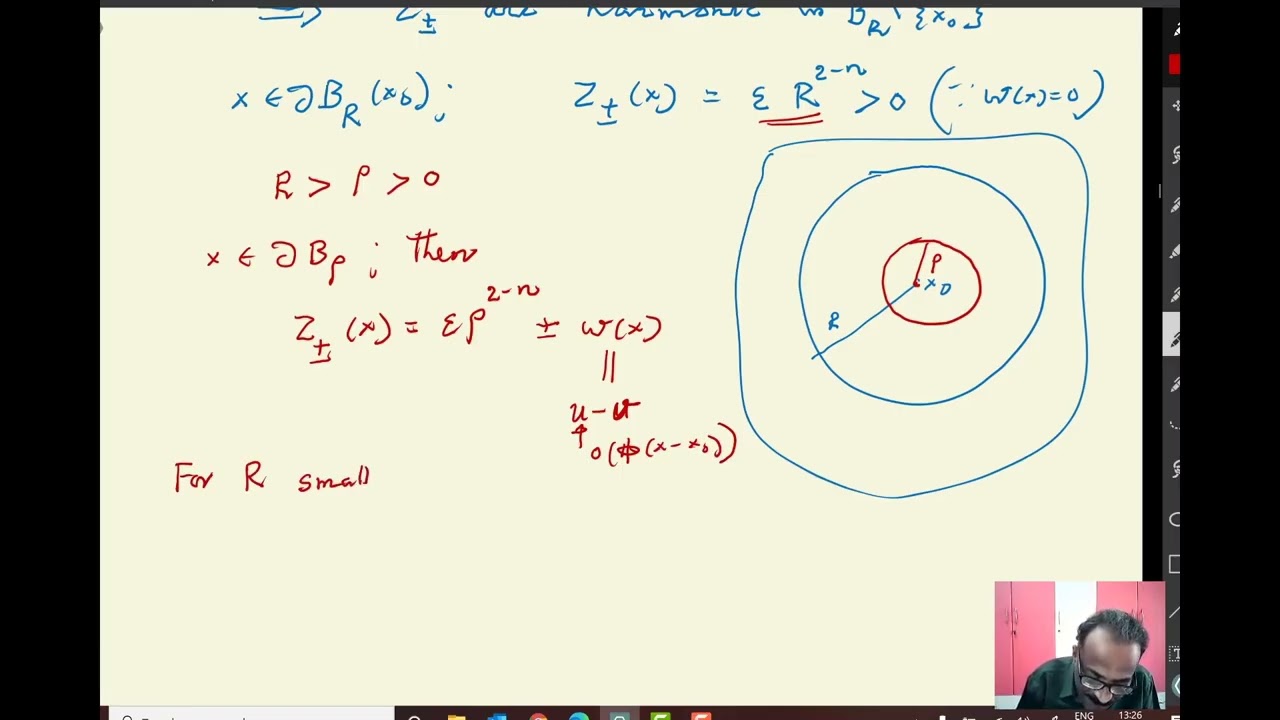 ⟹ Z± are harmonic in B_R \ {x₀}
x ∈ ∂B_R(x₀); Z±(x) = ε R^{2-n} > 0 (∵ w(x)=0)
R > ρ > 0
x ∈ ∂B_ρ ; Then
Z±(x) = ερ^{2-n} ± w(x)
||
u - v
↑ o(ϕ(x-x₀))
For R small
ρ
x₀
R
ENG
13:26